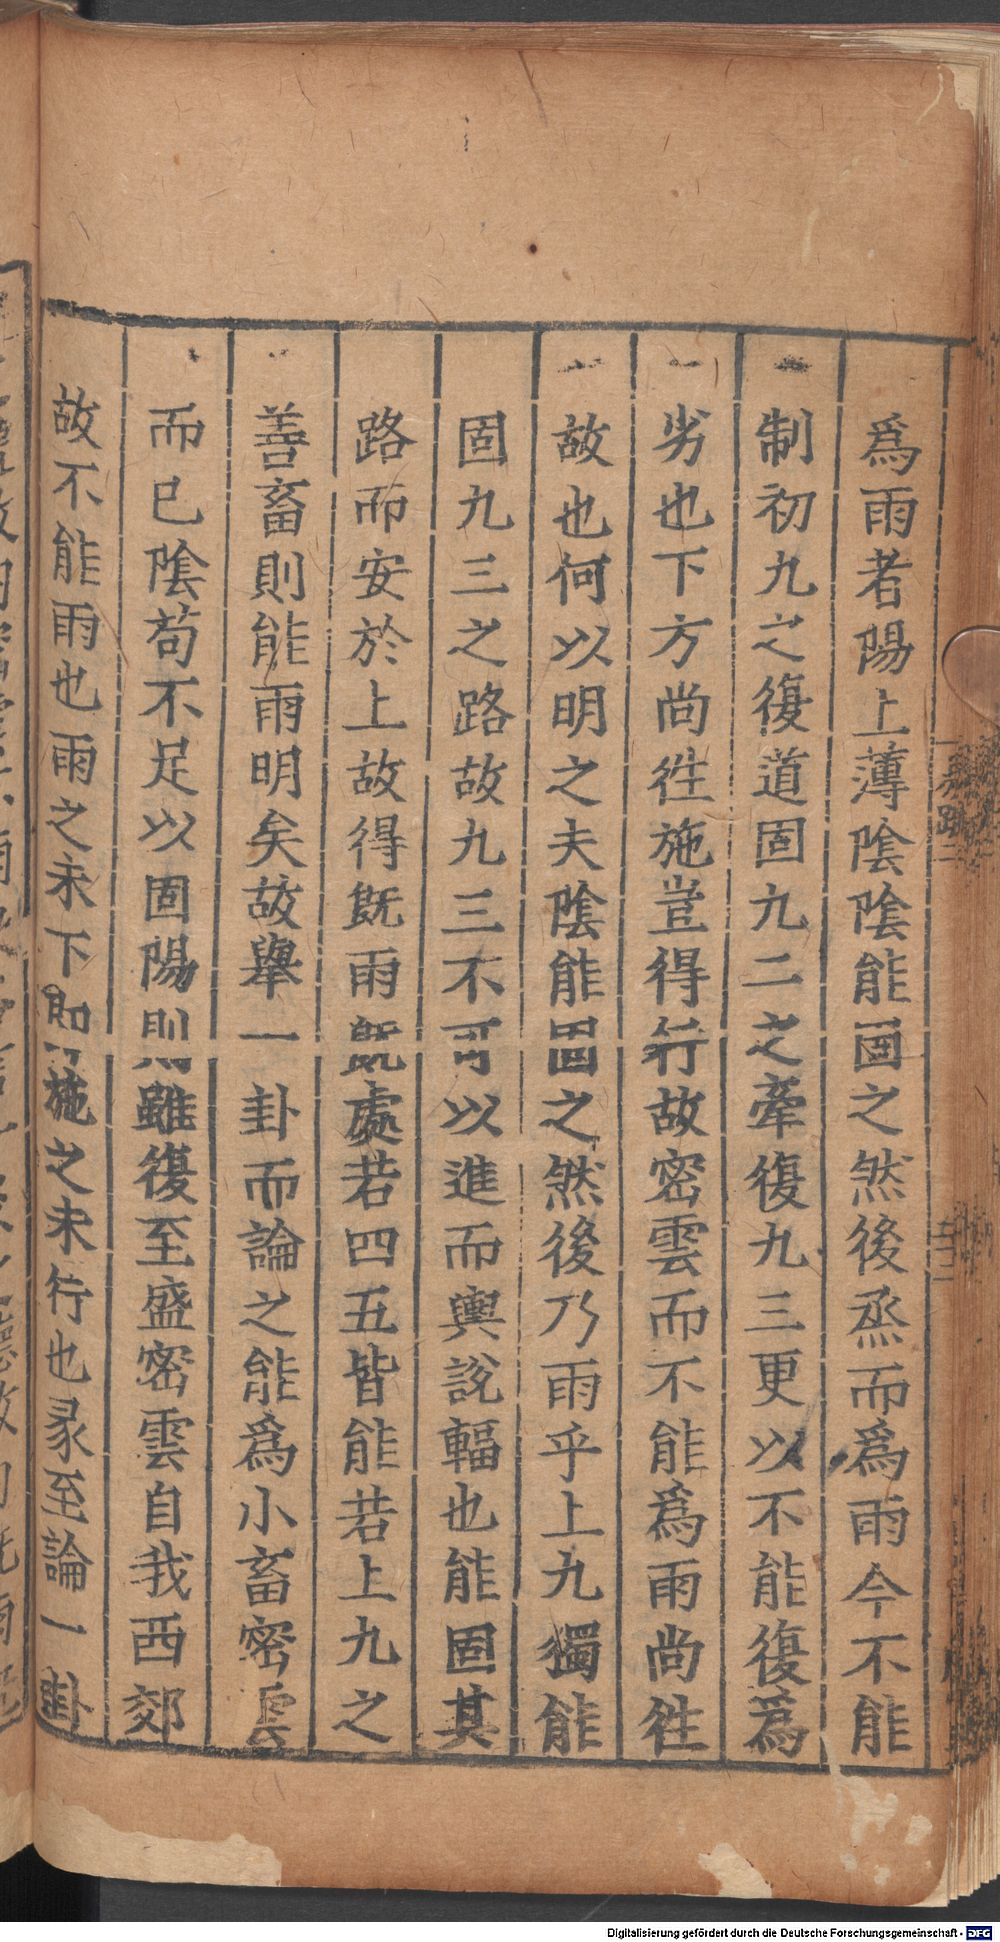 爲雨者陽上薄陰陰能固之然後烝而爲雨今不能
制初九之復道固九二之牽復九三更以不能復爲
劣也下方尚徃施豈得行故密雲而不能爲雨尚徃
故也何以明之夫陰能固之然後乃雨乎上九獨能
固九三之路故九三不可以進而輿說輻也能固其
路而安於上故得旣雨旣處若四五皆能若上九之
善畜則能雨明矣故舉一卦而論之能爲小畜密雲
而已陰苟不足以固陽則雖復至盛密雲自我西郊
故不能雨也雨之未下即施之未行也彖至論一卦
Digitalisierung gefördert durch die Deutsche Forschungsgemeinschaft - DFG